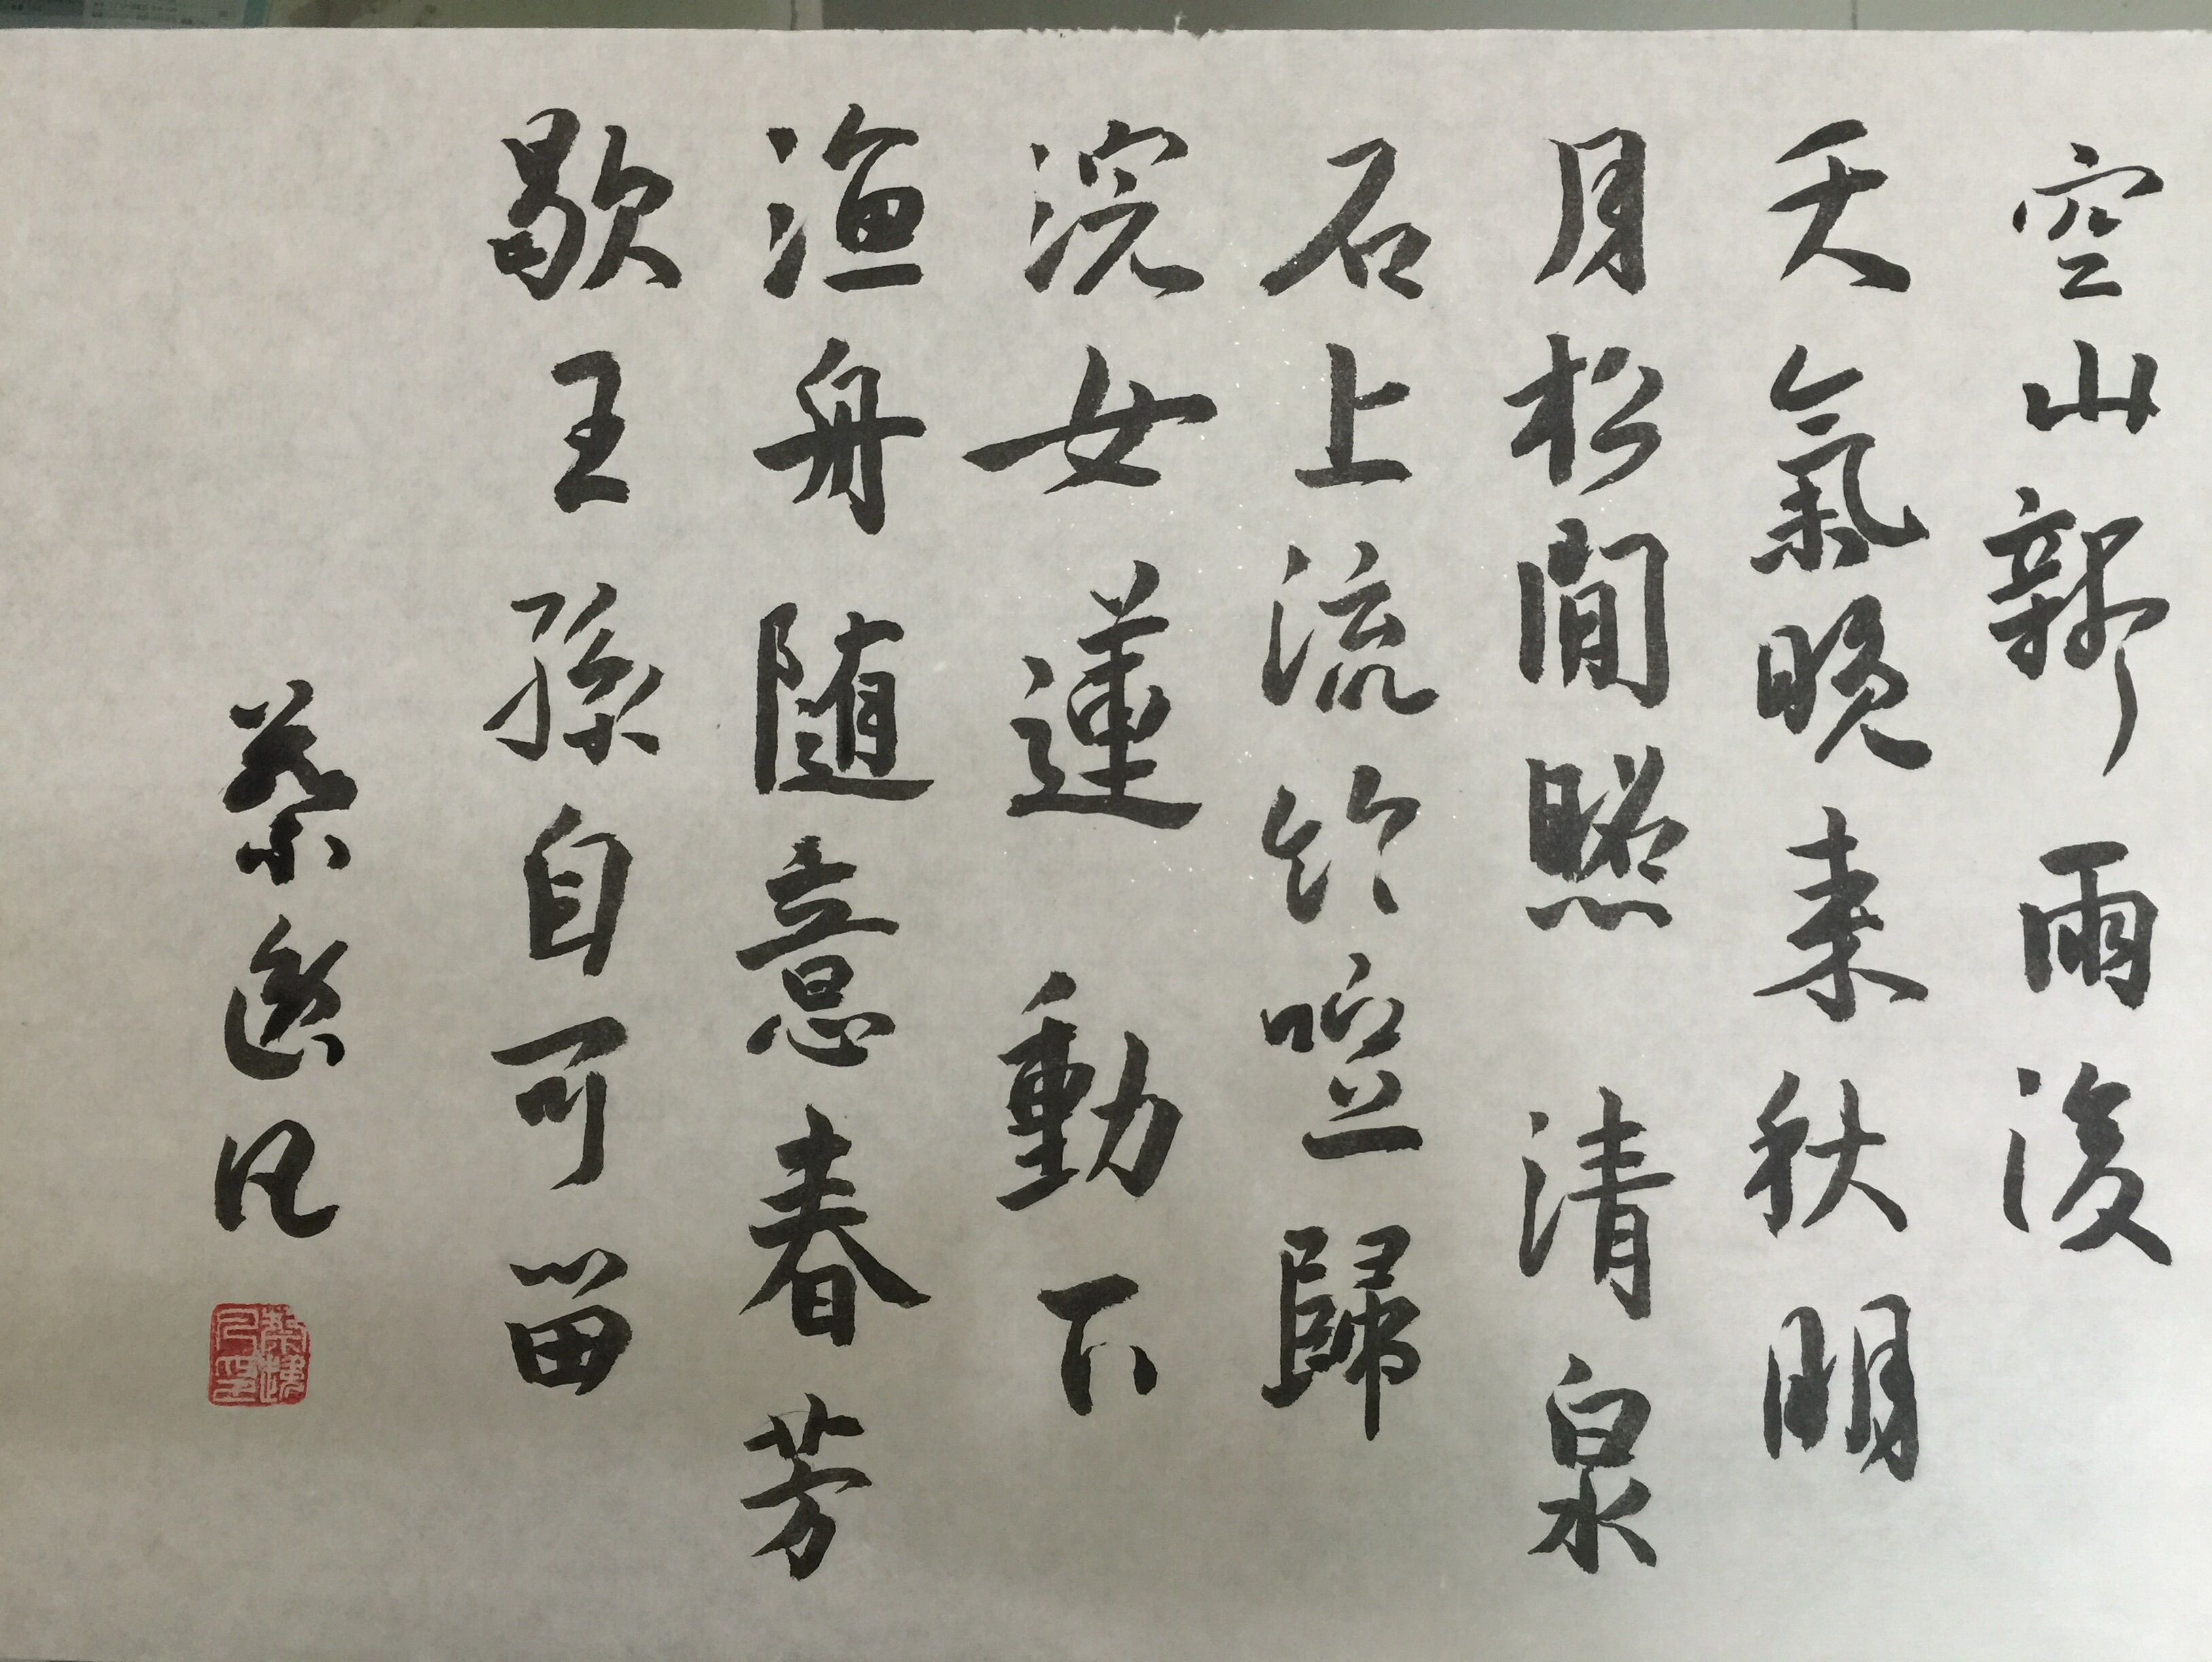 空山新雨後
天氣晚来秋明
月松間照清泉
石上流竹喧歸
浣女蓮動下
漁舟随意春芳
歇王孫自可留
蔡逸凡